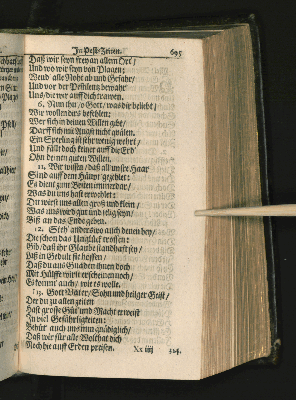 In Pest-Zeiten. 695
Daß wir seyn frey an allem Ort/
Und wo wir seyn von Plagen:
Wend alle Noht ab und Gefahr/
Und vor der Pestilentz bewahr
Uns/die wir auff dich trawen.
6. Nim thin/o Gott/was dir beliebt/
Wir wollen dirs befehlen:
Wer sich in deinen Willen gibt/
Darff sich mit Angst nicht quälen.
Ein Sperling ist ja wenig wehrt/
Und fällt doch keiner auff die Erd
Ohn deinen guten Willen.
11. Wir wissen/daß all unser Haar
Sind auff dem Häupt gezehlet:
Es dient zum Besten immerdar/
Was du uns hast erwehlet:
Dir wirfft uns alles groß und klein/
Was uns wird gut und selig seyn/
Biß an das Ende geben.
12. Steh' anders wo auch denen bey/
Die schon das Unglück troffen:
Gib/daß ihr Glaube standhafft sey/
Biß in Gedult sie hoffen/
Daß du aus Gnaden ihnen doch
Mit Hülffe wirst erscheinen noch/
Es komm' auch/wie es wolle.
13. Gott Vater/Sohn und heilger Geist/
Der du zu allen zeiten
Hast grosse Güt und Macht erweist
In viel Gefährligkeiten:
Behüt auch uns nun gnädiglich/
Daß wir für alle Wolthat dich
Noch hie auff Erden preisen.
Xx iiij 324.